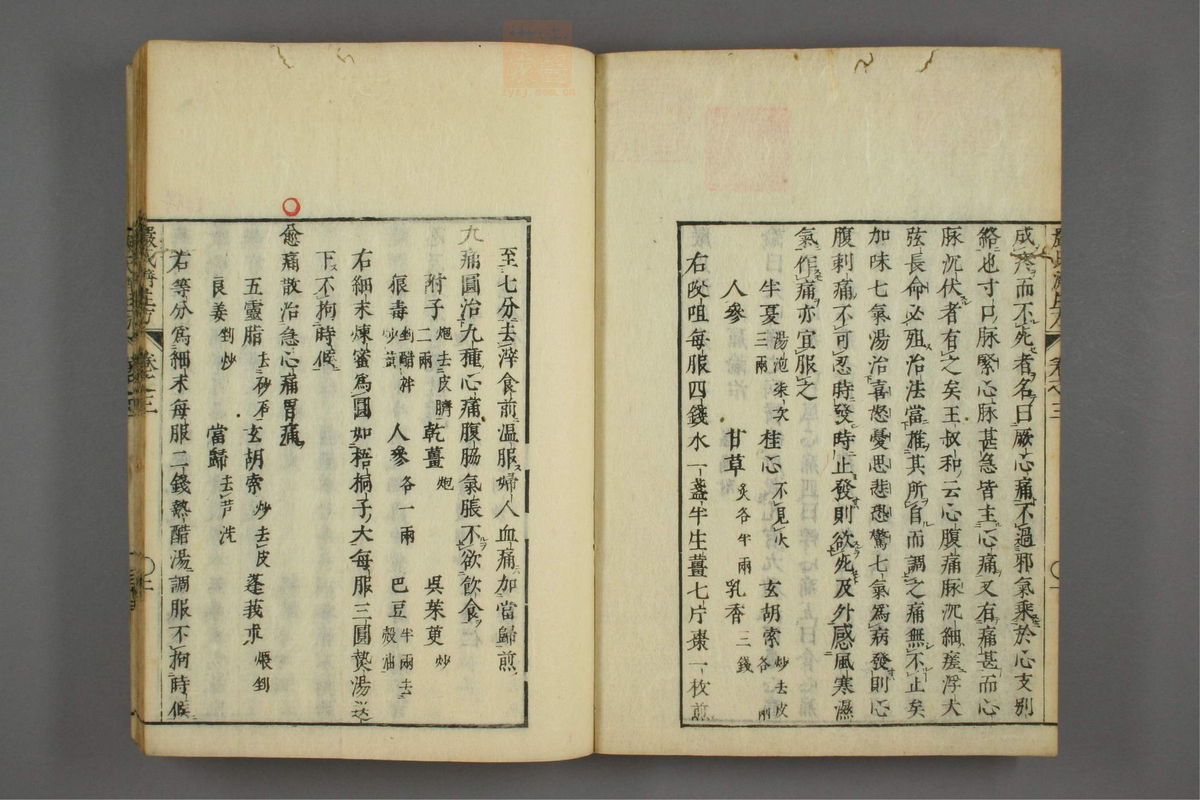 成疼而不死者名曰厥心痛不過邪氣乘於心支別
絡也寸口脉緊心脉甚急皆主心痛又有痛甚而心
脉沉伏者有之矣王叔和云心腹痛脉沉細瘥浮大
弦長命必殂治法當推其所自而調之痛無不止矣
加味七氣湯治喜怒憂思悲恐驚七氣為病發則心
腹刺痛不可忍時發時止發則欲死及外感風寒濕
氣作痛亦宜服之
半夏湯泡柒次三兩 桂心不見火 玄胡索炒去皮各一兩
人參 甘草炙各半兩 乳香三錢
右㕮咀每服四錢水一盞半生薑七片棗一枚煎
至七分去滓食前溫服婦人血痛加當歸煎
九痛圓治九種心痛腹肠氣脹不欲飲食
附子炮去皮臍二兩 乾薑炮 吳茱萸炒
狼毒剉醋拌炒 人參各一兩 巴豆半兩去殼油
右細末煉蜜為圓如梧桐子大每服三圓熱湯送
下不拘時候
愈痛散治急心痛胃痛
五靈脂去砂石 玄胡索炒去皮 蓬莪朮煨剉
良姜剉炒 當歸去芦洗
右等分為細末每服二錢熱醋湯調服不拘時候